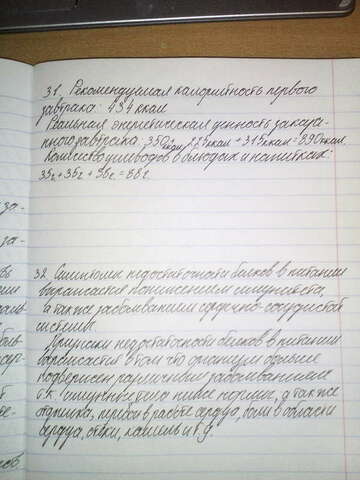 31. Рекомендуемая калорийность первого
завтрака: 434 ккал
Реальная энергетическая ценность заказа-
нного завтрака: 350ккал, 225ккал + 315ккал = 890ккал.
Количество углеводов в блюдах и напитках:
35г. + 35г + = 88г.
за-
за-
32. Симптомы недостаточности белков в питании
выражаются понижением иммунитета,
а также заболеваниями сердечно-сосудистой
системы.
Признаки недостатности белков в питании
в том что организм
подвержен различным заболеваниям
т.к. иммунитета ниже нормы, а также
одышка, перебои в работе сердца, боли в области
сердца, отёки, кашель и т.д.